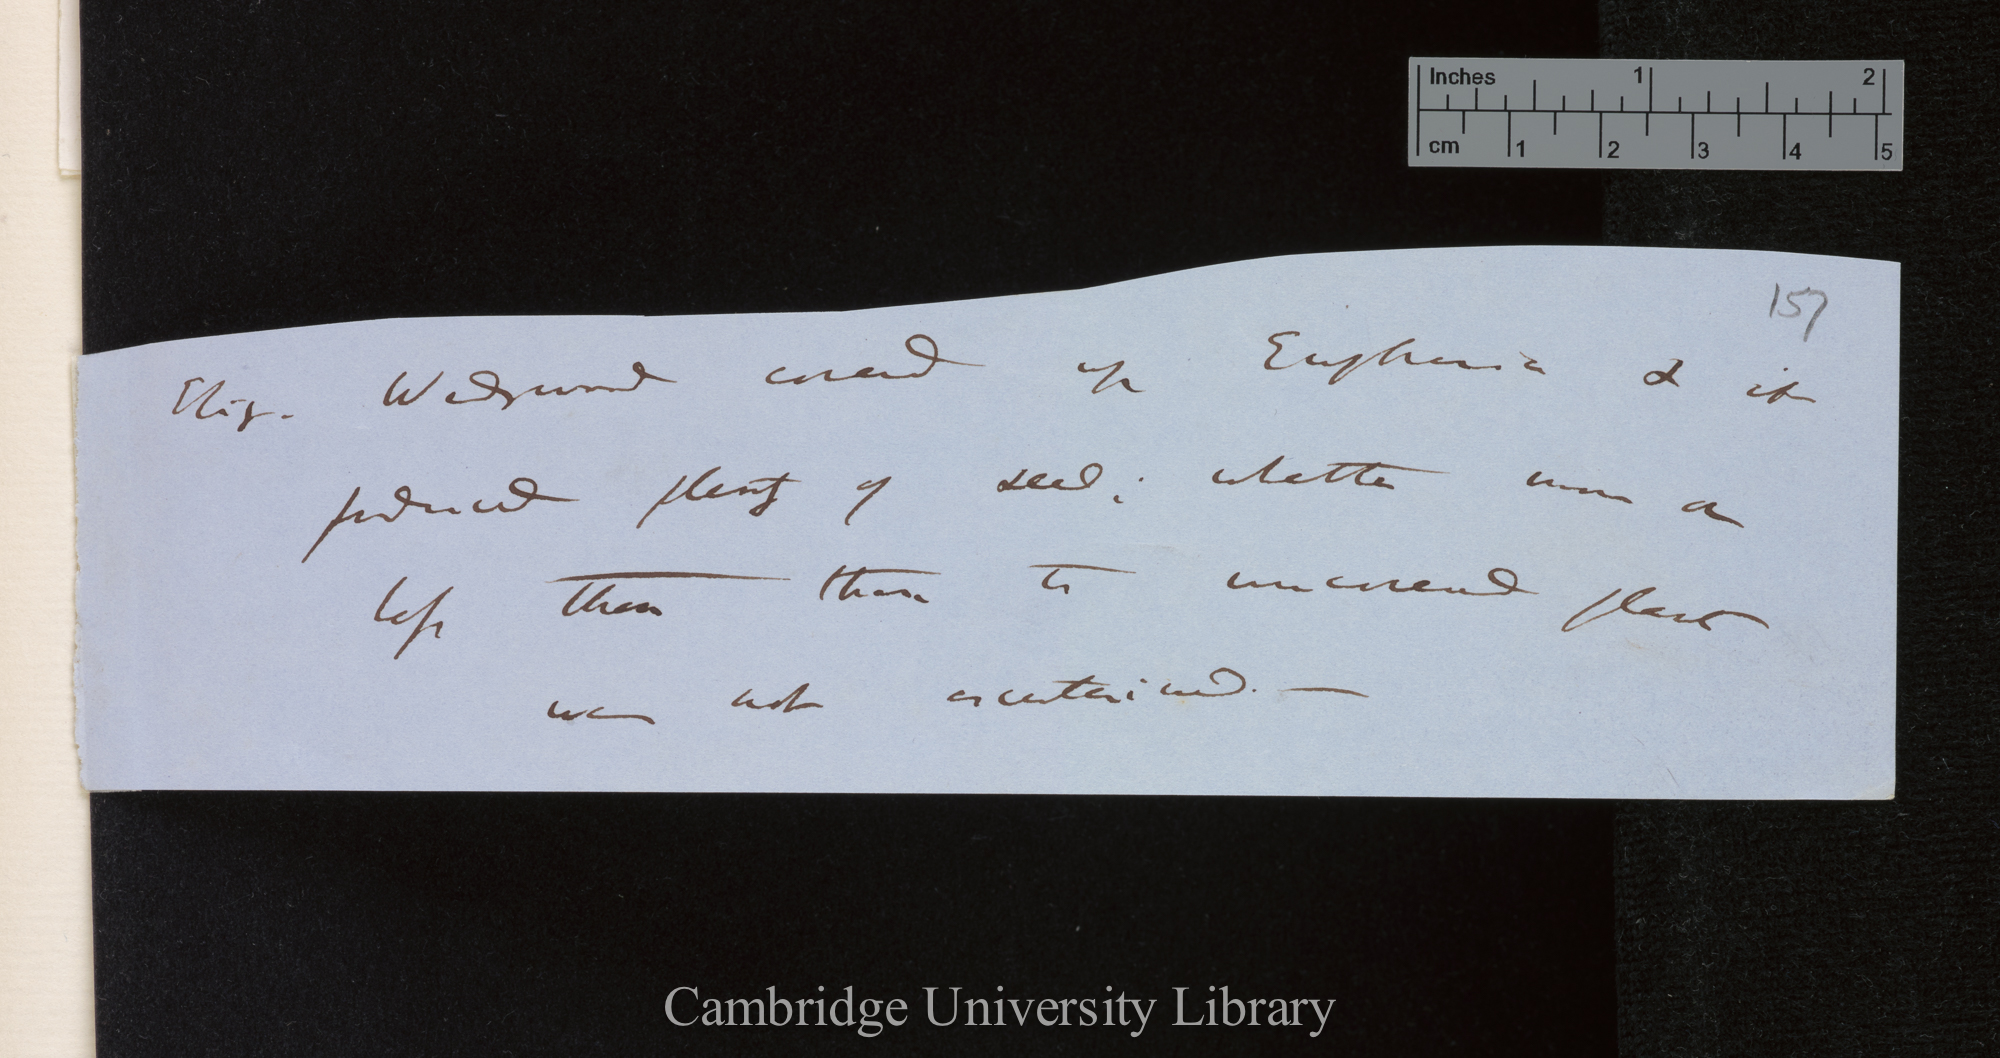 Inches 1 2
cm 1 2 3 4 5
157
Eliz. Wedgwood covered up Euphrasia & it
produced plenty of seed; whether more or
less than than to uncovered plant
was not ascertained. —
Cambridge University Library